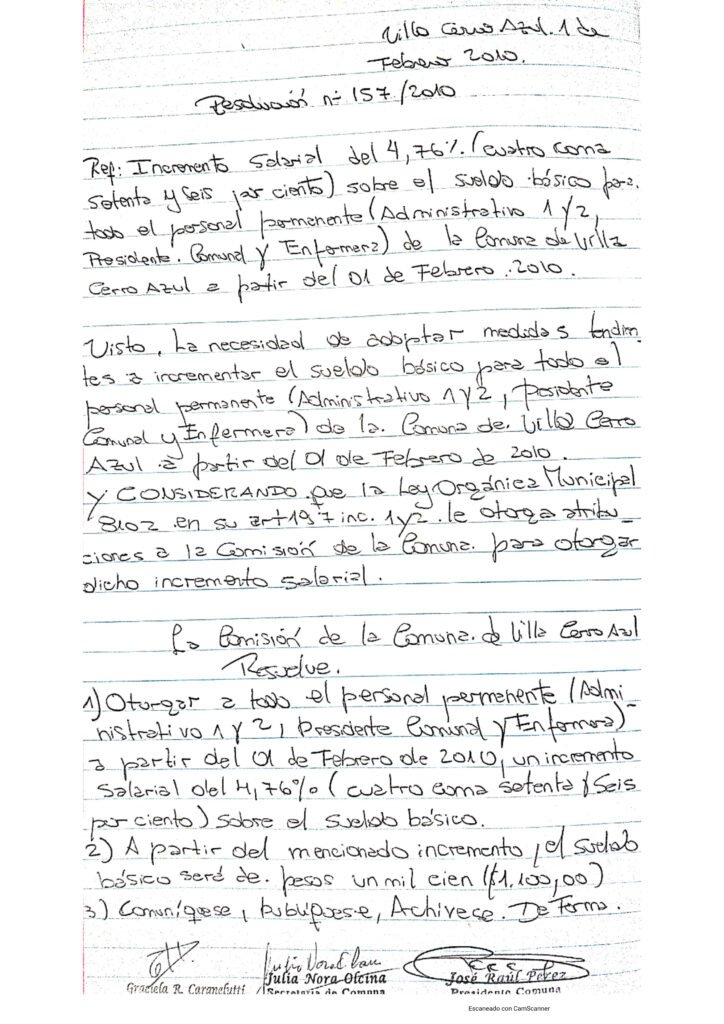 Villa Cerro Azul. 1 de
Febrero 2010.
Resolución nº 157/2010
Ref: Incremento Salarial del 4,76%. (cuatro coma
setenta y seis por ciento) sobre el sueldo básico para
todo el personal permanente (Administrativo 1 y 2,
Presidente. Comunal y Enfermera) de la Comuna de Villa
Cerro Azul a partir del 01 de Febrero. 2010.
Visto, La necesidad de adoptar medidas tendien
tes a incrementar el sueldo básico para todo el
personal permanente (Administrativo 1 y 2, Presidente
Comunal y Enfermera) de la. Comuna de. Villa Cerro
Azul a partir del 01 de Febrero de 2010.
Y CONSIDERANDO que la Ley Orgánica Municipal
8102 en su art 197 inc. 1 y 2. le otorga atribu_
ciones a la Comisión de la Comuna. para otorgar
dicho incremento salarial.
La Comisión de la Comuna. de Villa Cerro Azul
Resuelve.
1) Otorgar a todo el personal permanente (Admi_
nistrativo 1 y 2, Presidente Comunal y Enfermera)
a partir del 01 de Febrero de 2010, un incremento
Salarial del 4,76% (cuatro coma setenta y Seis
por ciento) sobre el sueldo básico.
2) A partir del mencionado incremento, el sueldo
básico será de. pesos un mil cien ($1.100,00)
3) Comuníquese, Publíquese, Archívese. De Forma.
Graciela R. Caranefutti
Julia Nora Olcina
Secretaria de Comuna
José Raúl Perez
Presidente Comuna
Escaneado con CamScanner